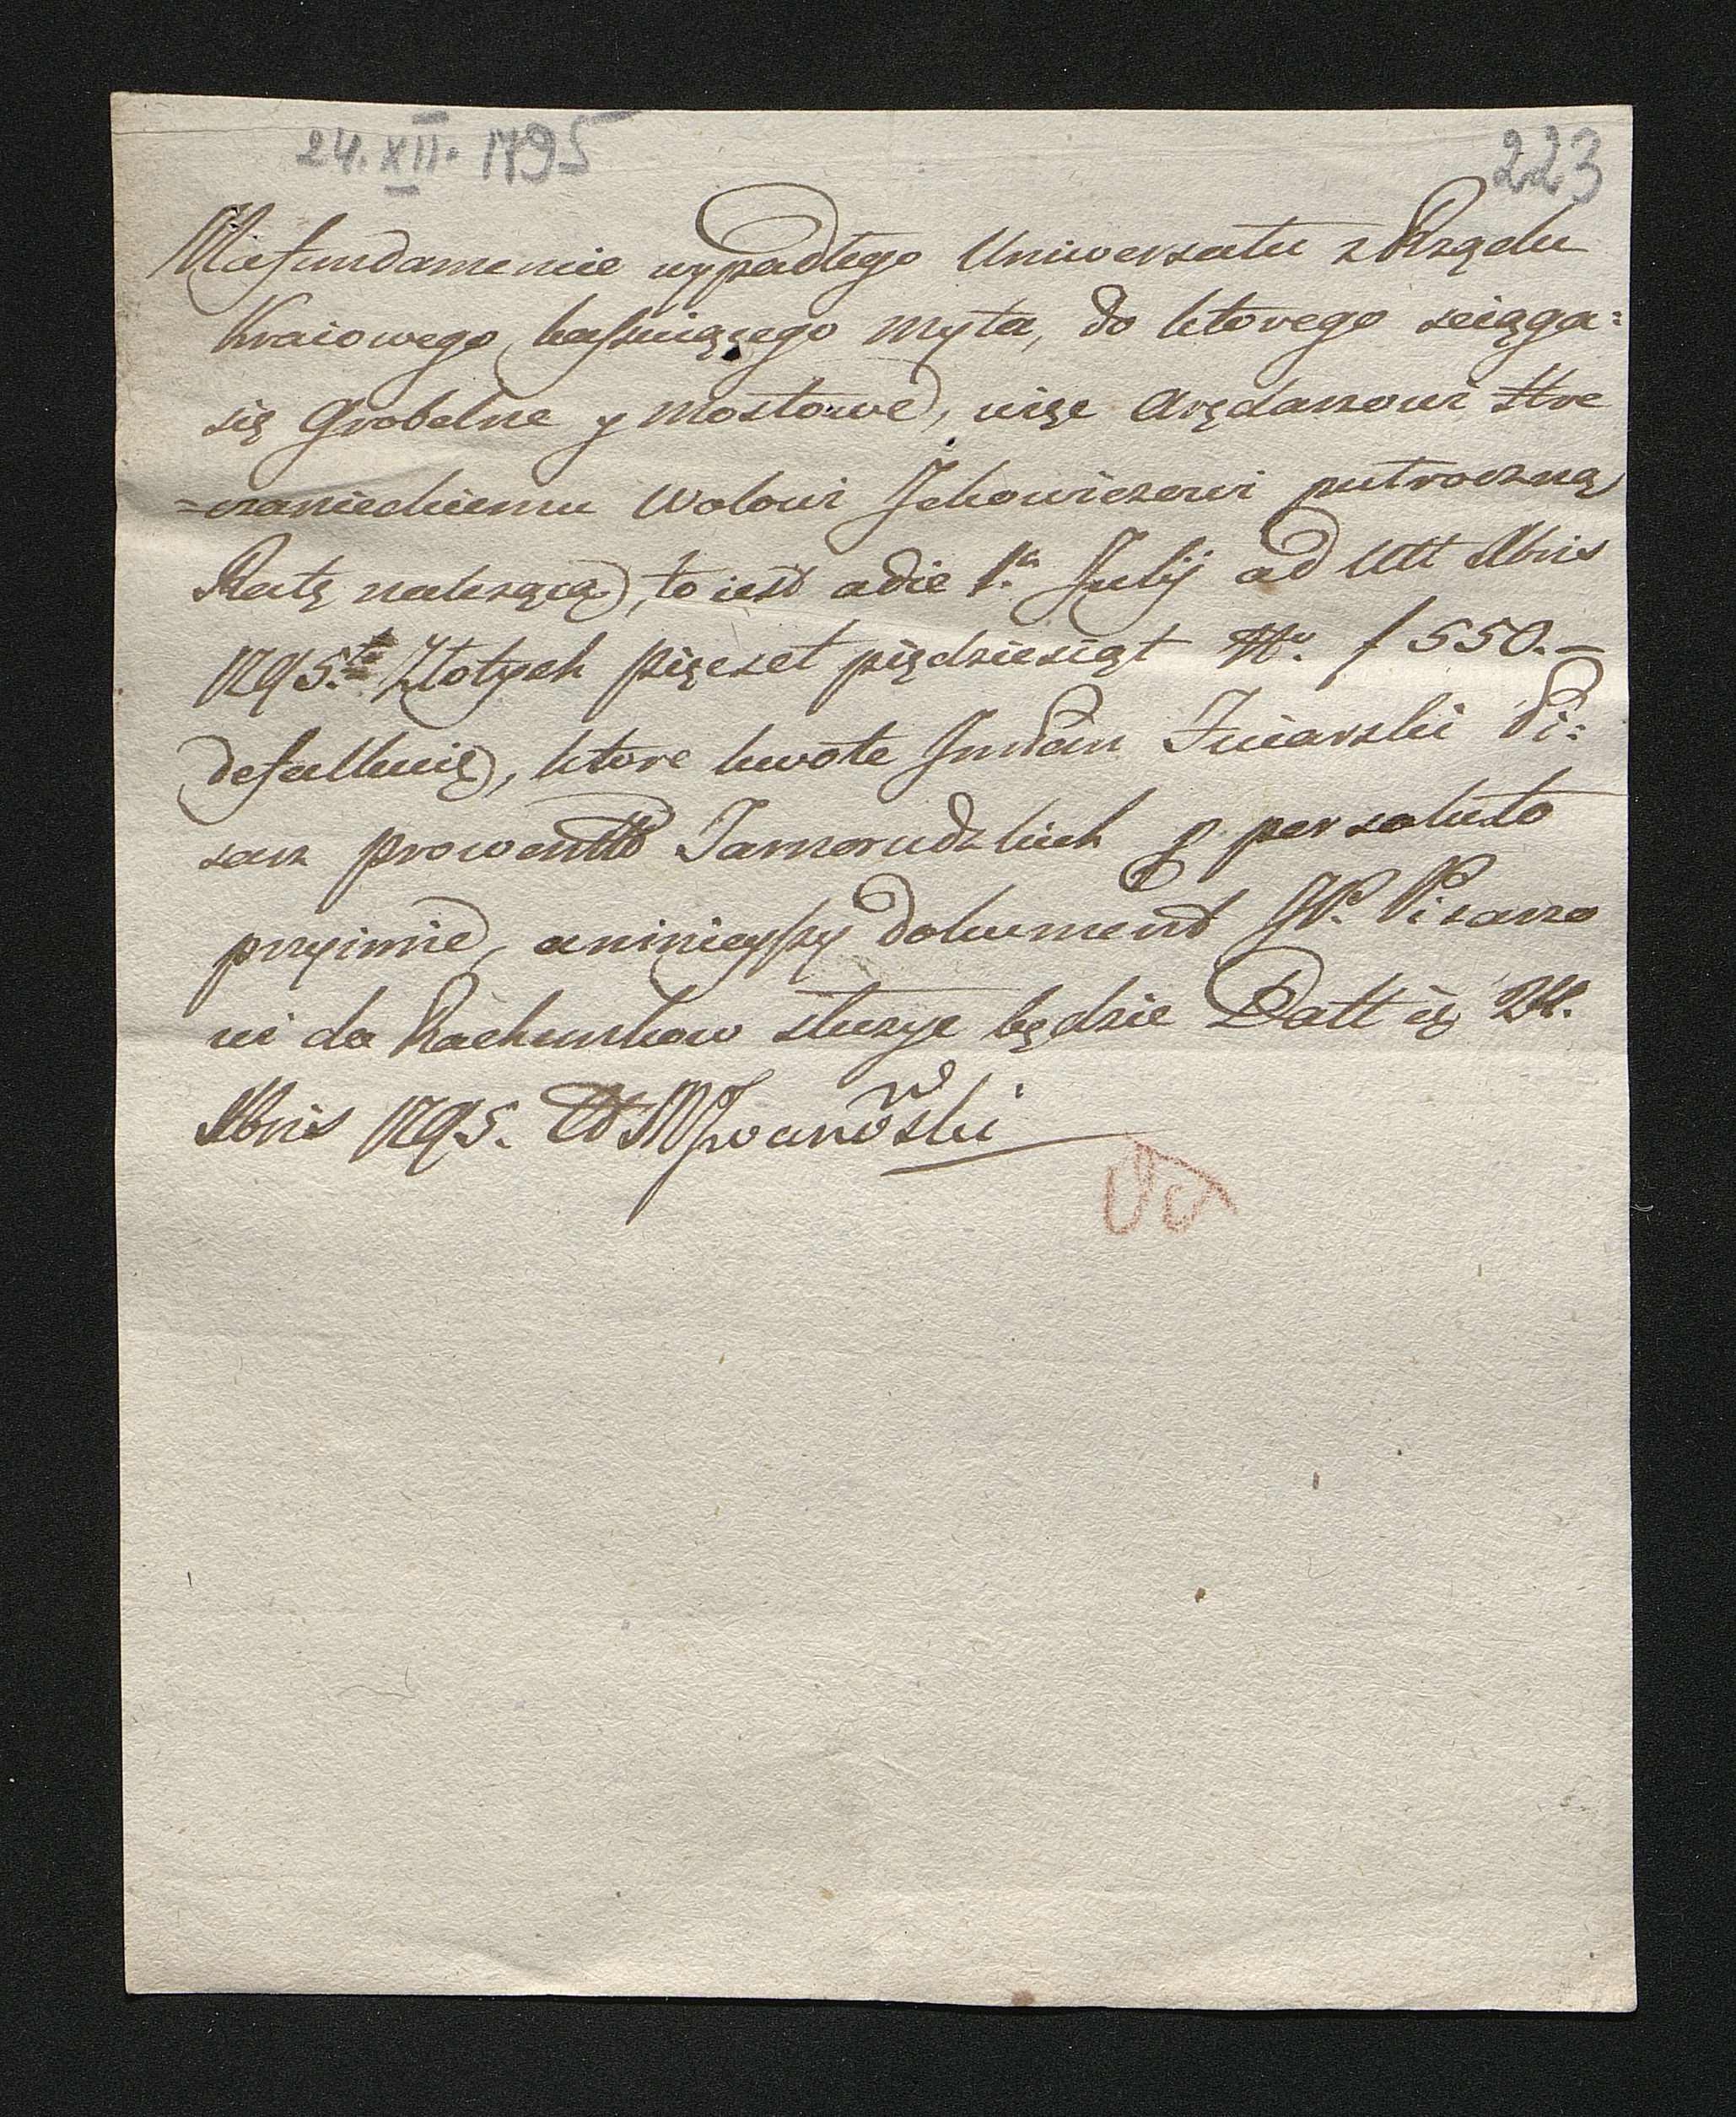 24.XII. 1795
223
Na fundamencie wypadłego Uniwersału z Rządu
Kraiowego kassuiącego myta, do ktorego sciąga:
się Grobelne y Mostowe, więc Arędarzowi Hre
=czanieckiemu Wolowi Ickowiczowi puł roczną
Ratę należącą, to iest a die 1ma Julij ad Ult Xbris
1795.to Złotych pięcset piędziesiąt No. f 550.—
defalkuię, ktore kwote Jmć Pan Pi:
sarz prowentu Tarnorudzkich p persoluto
przyimie, a ninieyszy dokument JP. Pisarzo
wi do Rachunkow służyc będzie Datt 24.
Xbris 1795. Iwanowski